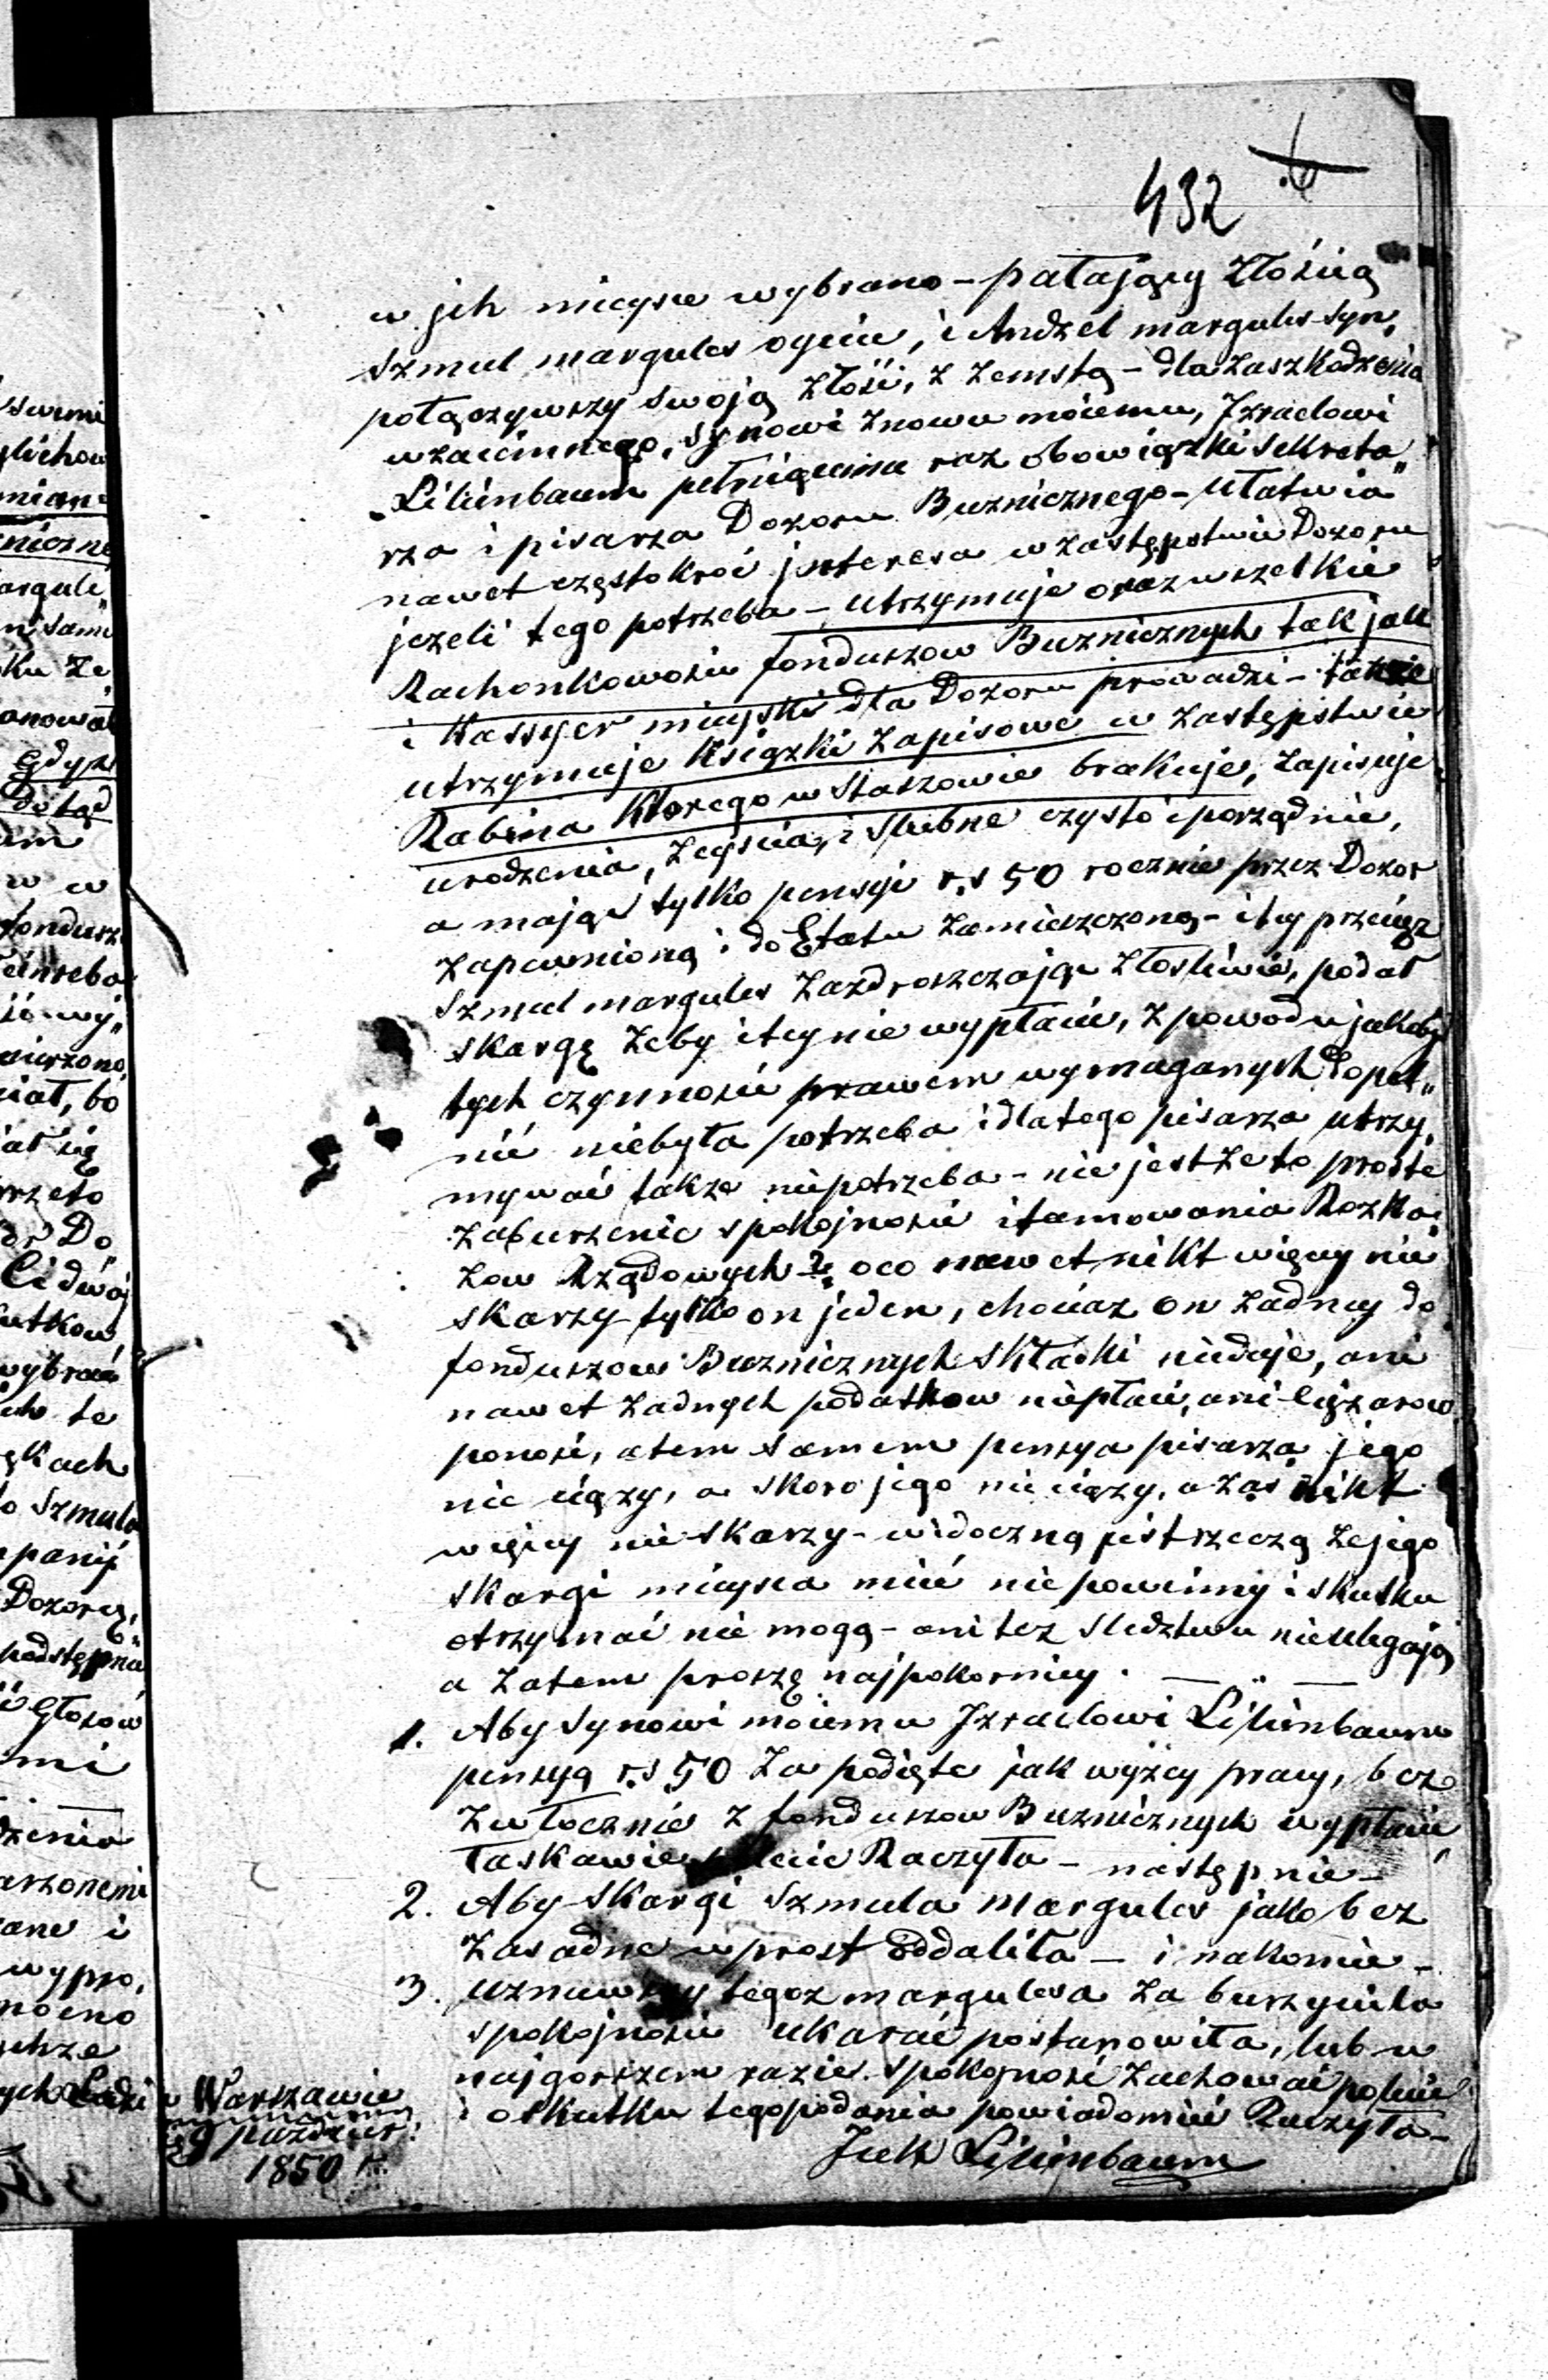 432
w jch mieysce wybrano – pałający złością
Szmul margules ogniu, i Andzel margules syn,
połączywszy swoją złość, z zemstą – dla zaszkodzenia
wzaiemnego, synowi znowu moiemu, Jzraelowi
Lilienbaum pełniącemu raz obowiązki Sekreta„
rza i pisarza Dozoru Buznicznego – ułatwia
nawet częstokroć jnteresa w zastępstwie Dozoru
jezeli tego potrzeba – utrzymuje oraz wszelkie
Rachonkowosci fonduszow Buznicznych tak jak
i Kassyer mieyski dla Dozoru prowadzi – także
utrzymuje Ksiązki zapisowe w zastępstwie
Rabina Ktorego w Staszowie brakuje, zapisuje
urodzenia, zeyscia, i slubne czysto i porządnie,
a mając tylko pensyi r.s 50 rocznie przez Dozor
zapewnioną i do Etatu zamieszczoną – i tey przeciez
Szmul margules zazdroszczając złosliwie, podał
skargę zeby i tey nie wypłacić, z powodu jakoby
tych czynnosci prawem wymaganych dopeł„
nić niebyła potrzeba i dlatego pisarza utrzy„
mywać takze niepotrzeba – nie jest ze to proste
zaburzenie spokojnosci i tamowania Rozka„
zow Rządowych? oco nawet nikt więcey nie
skarzy tylko on jeden, chociaz on zadney do
fonduszow Buznicznych składki niedaje, ani
nawet zadnych podatkow niepłaci, ani cięzarow
ponosi, a tem samem pensya pisarza jego
nie ciązy, a skoro jego nie ciązy, a zas nikt
więcey nie skarzy – widoczną jest rzeczą ze jego
skargi mieysca mieć nie powinny i skutku
otrzymać nie mogą – ani tez sledztwu nieulegają
a zatem proszę najpokorniey.
1. Aby synowi moiemu Jzraelowi Lilienbaum
pensyą r.s 50 za podięte jak wyżey pracy, bez
zwłocznie z fonduszow Buznicznych wypłacić
łaskawie Raczyła – następnie –
2. Aby skargi Szmula Margules jako bez
zasadne wprost oddaliła – i nakoniec –
3. uznawszy tegoz margulesa za burzyciela
spokojnosci ukarać postanowiła, lub w
najgorszem razie spokojnosć zachować polecić
i o skutku tego podania powiadomić Raczyła –
Jcek Lilienbaum
w Warszawie
9 pazdzier:
1850 r.